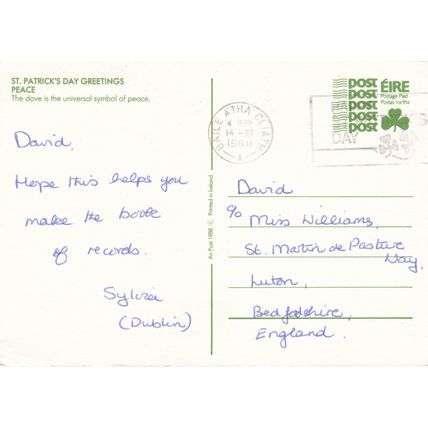 ST. PATRICK'S DAY GREETINGS
PEACE
The dove is the universal symbol of peace.
David,
Hope this helps you
make the book
of records.
Sylvia
(Dublin)
An Post 1988 © Printed in Ireland
BAILE ÁTHA CLIATH
14 -III
1988
A
DAY
POST
POST
POST
POST
POST
ÉIRE
Postage Paid
Postas Íoctha
David
c/o Miss Williams,
St. Martin de Pasture
Way,
Luton,
Bedfordshire,
England.